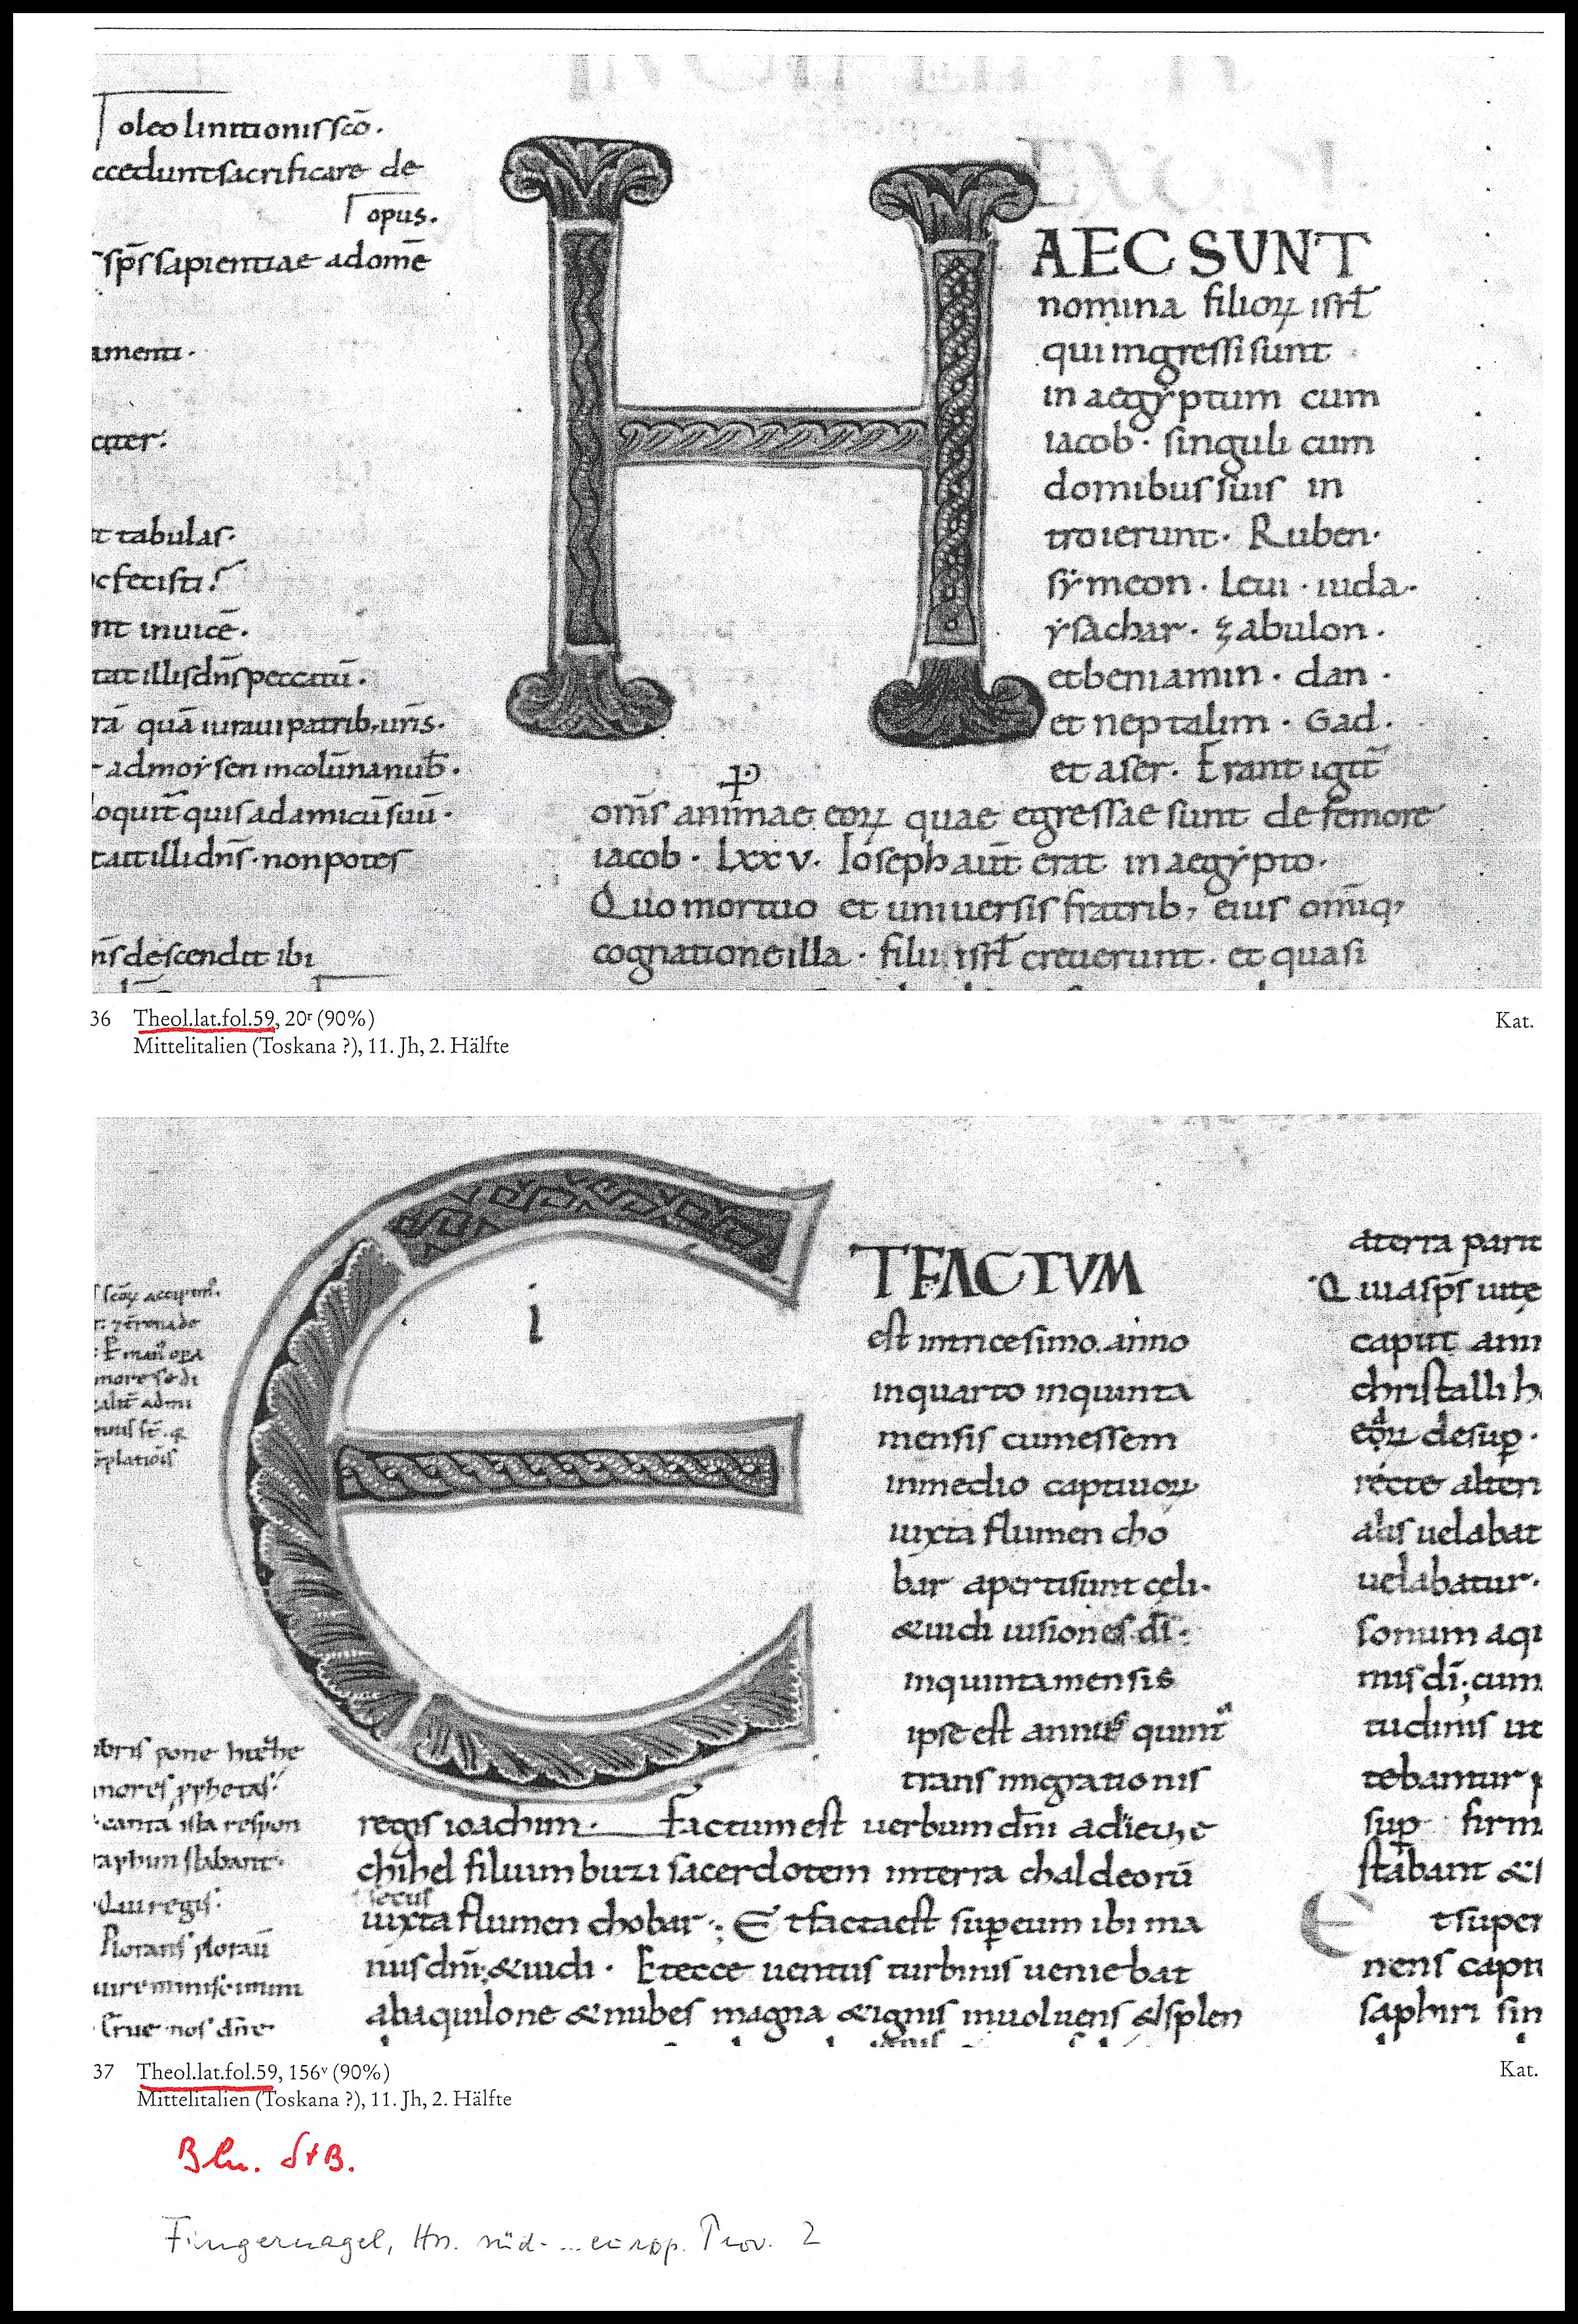 oleo linitionis sco̅.
ccedunt sacrificare de
opus.
sp̅s sapientiae ad om̅e
amenti.
citer.
t tabulas.
c fecisti?
nt inuice̅.
tat illis dn̅s peccatu̅.
ra̅ qua̅ iuraui patrib; ur̅is.
ad moẏsen in colu̅na nub̅.
loquit̅ quis ad amicu̅ suu̅.
tait illi dn̅s. non potes
n̅s descendit ibi
H
AEC SUNT
nomina filioꝝ isrl̅
qui ingressi sunt
in aegẏptum cum
iacob. singuli cum
domibus suis in
troierunt. Ruben.
sẏmeon. Leui. iuda.
ẏsachar. zabulon.
et beniamin. dan.
et neptalim. Gad.
et aser. Erant igit̅
om̅s animae eoꝝ quae egressae sunt de femore
iacob. Lxxv. Ioseph aut̅ erat in aegẏpto.
Quo mortuo et uniuersis fratrib; eius om̅iq;
cognatione illa. filii isrl̅ creuerunt. et quasi
36 Theol.lat.fol.59, 20ʳ (90%)
Mittelitalien (Toskana ?), 11. Jh, 2. Hälfte
Kat.
E
i
T FACTVM
est in tricesimo. anno
in quarto in quinta
mensis cum essem
in medio captiuoꝝ
iuxta flumen cho
bar aperti sunt celi.
& uidi uisiones di̅.
in quinta mensis
ipse est annus quint
trans migrationis
regis ioachim. Factum est uerbum dn̅i ad ieze
chihel filium buzi sacerdotem in terra chaldeoru̅
secus
iuxta flumen chobar; Et facta est super eum ibi ma
nus dn̅i; & uidi. Et ecce uentus turbinis ueniebat
ab aquilone & nubes magna & ignis inuoluens & splen
a terra parit
Quia sp̅s uite
caput ani
christalli h
eoꝝ desuꝑ.
recte alter
alis uelabat
uelabatur.
sonum aqu
mis di̅; cum
tudinis ut
tebantur
suꝑ firm
stabant &
Et super
nens capit
saphiri sin
Qui regis.
37 Theol.lat.fol.59, 156ᵛ (90%)
Mittelitalien (Toskana ?), 11. Jh, 2. Hälfte
Kat.
Bln. StB.
Fingernagel, Hss. süd-...europ. Prov. 2